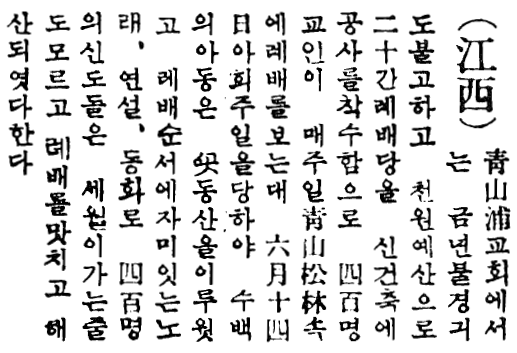 (江西)
靑山浦교회에서
는 금년불경긔
도불고하고 천원예산으로
二十간례배당을 신건축에
공사를착수함으로 四百명
교인이 매주일靑山松林속
에레배를보는대 六月十四
日아회주일을당하야 수백
의아동은 ᄭᅩᆺ동산을이루웟
고 레배순서에자미잇는노
래, 연설, 동화로 四百명
의신도들은 세월이가는줄
도모르고 레배를맛치고 해
산되엿다한다